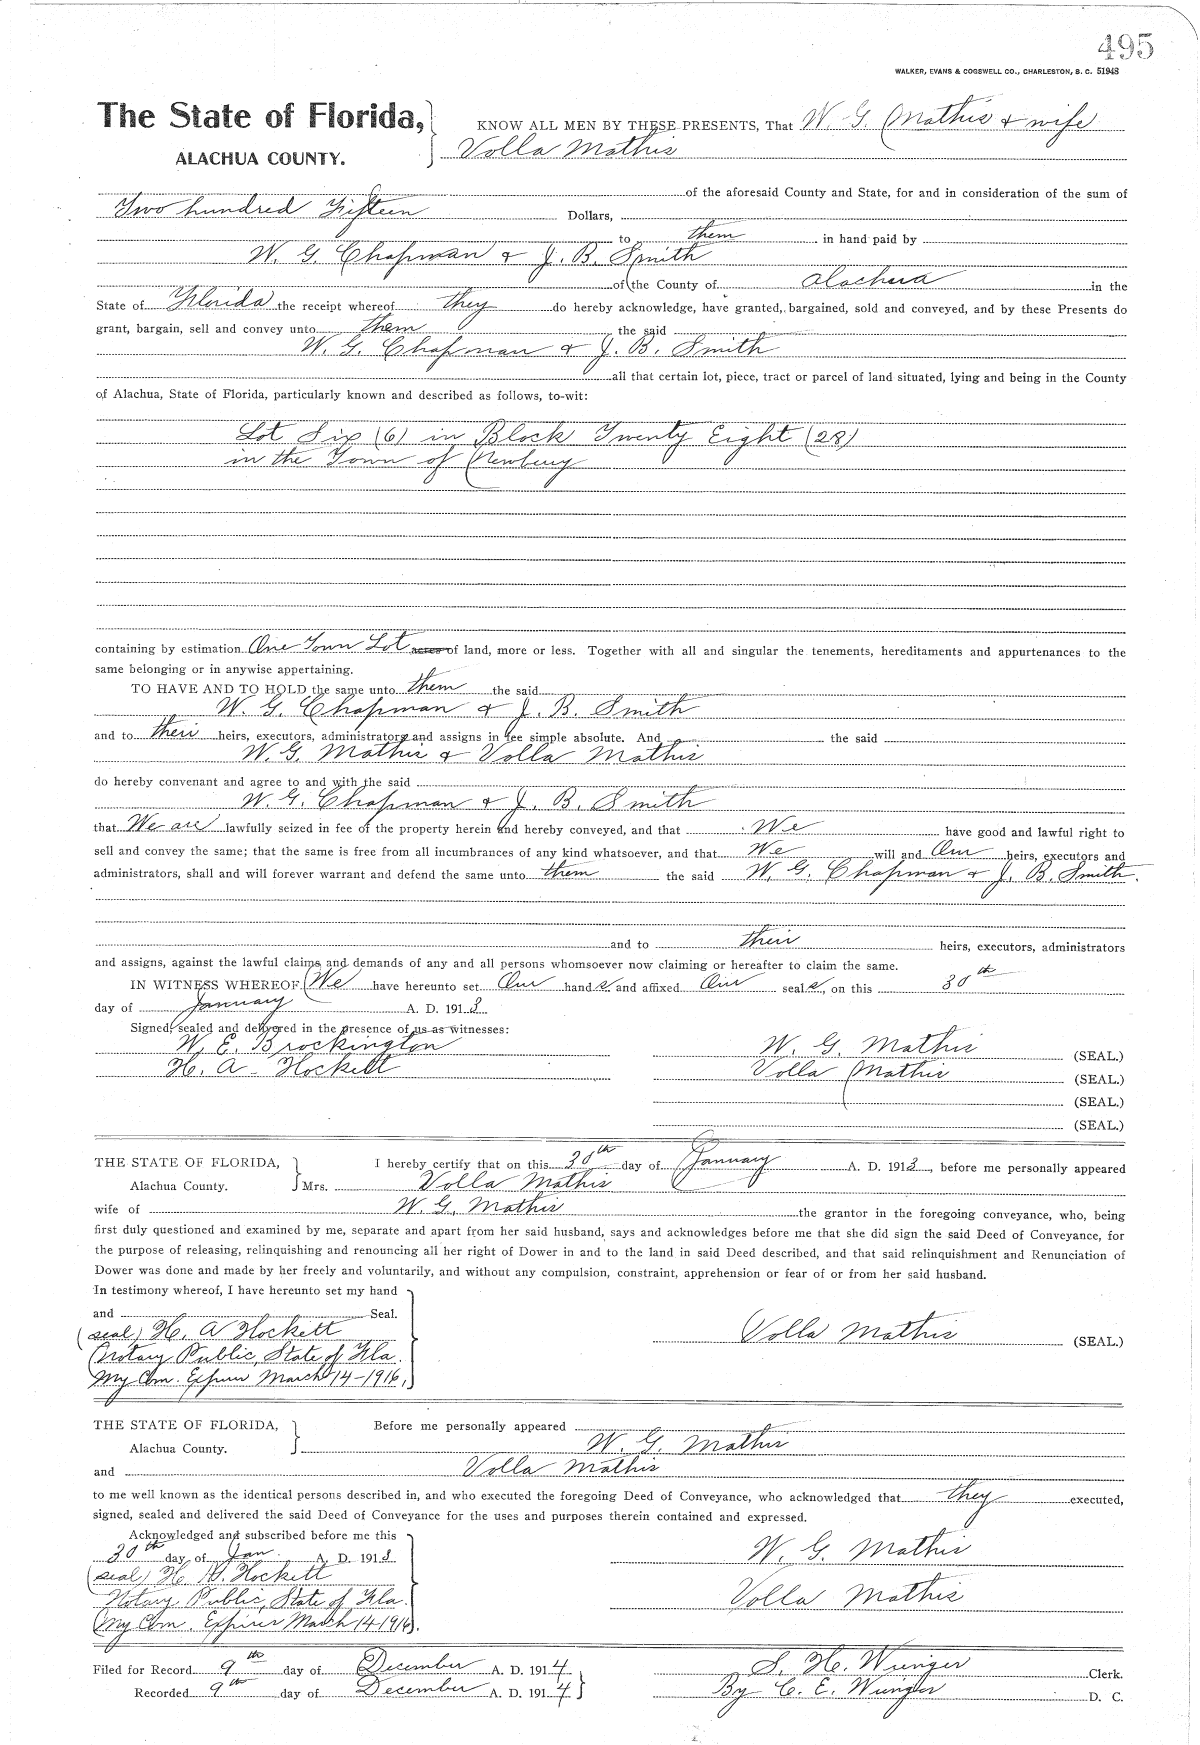 495
WALKER, EVANS & COGSWELL CO., CHARLESTON, S. C. 51948
The State of Florida,
ALACHUA COUNTY.
KNOW ALL MEN BY THESE PRESENTS, That W. G. Mathis & wife
Volla Mathis
of the aforesaid County and State, for and in consideration of the sum of
Two hundred Fifteen Dollars,
to them in hand paid by
W. G. Chapman & J. B. Smith
of the County of Alachua in the
State of Florida the receipt whereof they do hereby acknowledge, have granted, bargained, sold and conveyed, and by these Presents do
grant, bargain, sell and convey unto them the said
W. G. Chapman & J. B. Smith
all that certain lot, piece, tract or parcel of land situated, lying and being in the County
of Alachua, State of Florida, particularly known and described as follows, to-wit:
Lot Six (6) in Block Twenty Eight (28)
in the Town of Newberry
containing by estimation One Town Lot acres of land, more or less. Together with all and singular the tenements, hereditaments and appurtenances to the
same belonging or in anywise appertaining.
TO HAVE AND TO HOLD the same unto them the said
W. G. Chapman & J. B. Smith
and to their heirs, executors, administrators and assigns in fee simple absolute. And the said
W. G. Mathis & Volla Mathis
do hereby convenant and agree to and with the said
W. G. Chapman & J. B. Smith
that We are lawfully seized in fee of the property herein and hereby conveyed, and that We have good and lawful right to
sell and convey the same; that the same is free from all incumbrances of any kind whatsoever, and that We will and Our heirs, executors and
administrators, shall and will forever warrant and defend the same unto them the said W. G. Chapman & J. B. Smith.
and to their heirs, executors, administrators
and assigns, against the lawful claims and demands of any and all persons whomsoever now claiming or hereafter to claim the same.
IN WITNESS WHEREOF, We have hereunto set Our hands and affixed Our seals, on this 30th
day of January A. D. 1913
Signed, sealed and delivered in the presence of us as witnesses:
W. E. Brockington
H. A. Hockett
W. G. Mathis (SEAL.)
Volla Mathis (SEAL.)
(SEAL.)
(SEAL.)
THE STATE OF FLORIDA,
Alachua County.
I hereby certify that on this 30th day of January A. D. 1913, before me personally appeared
Mrs. Volla Mathis
wife of W. G. Mathis the grantor in the foregoing conveyance, who, being
first duly questioned and examined by me, separate and apart from her said husband, says and acknowledges before me that she did sign the said Deed of Conveyance, for
the purpose of releasing, relinquishing and renouncing all her right of Dower in and to the land in said Deed described, and that said relinquishment and Renunciation of
Dower was done and made by her freely and voluntarily, and without any compulsion, constraint, apprehension or fear of or from her said husband.
In testimony whereof, I have hereunto set my hand
and Seal.
(seal) H. A Hockett
Notary Public, State of Fla.
My Com. Expires March 14-1916.
Volla Mathis (SEAL.)
THE STATE OF FLORIDA,
Alachua County.
Before me personally appeared
W. G. Mathis
and Volla Mathis
to me well known as the identical persons described in, and who executed the foregoing Deed of Conveyance, who acknowledged that they executed,
signed, sealed and delivered the said Deed of Conveyance for the uses and purposes therein contained and expressed.
Acknowledged and subscribed before me this
30th day of Jan. A. D. 1913
(seal) H. A. Hockett
Notary Public, State of Fla.
(My Com. Expires March 14-1916).
W. G. Mathis
Volla Mathis
Filed for Record 9th day of December A. D. 1914
Recorded 9th day of December A. D. 1914
S. H. Wienges Clerk.
By C. E. Wienges D. C.